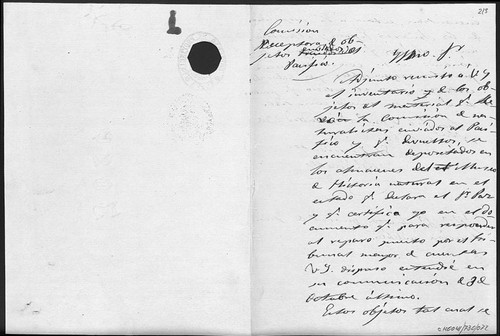 213
Comisión
Receptora de ob-
jetos
Pacífico.
Ylmo. Sr
Adjunto remito á V.Y
el inventario y de los ob-
jetos el material qe
la Comisión de na-
turalistas enviados al Pací-
fico y qe devueltos, se
encuentran depositados en
los almacenes del Museo
de Historia natural en el
estado qe el Sr Paz
y qe certifica yo en el do-
cumento qe para responder
al reparo puesto por el tri-
bunal mayor de cuentas
V.Y. dispuso
su comunicación de 3 de
Octubre último.
Estos objetos tal cual se
CN0048/730/072